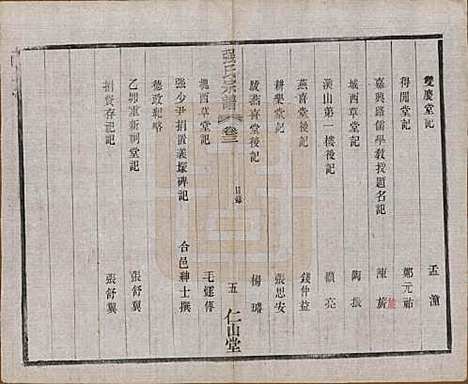 雙慶堂記 孟潼
得閒堂記 鄭元祐
嘉興路儒學教授題名記 陳
城西草堂記 陶振
溪山第一樓後記 賴亮
燕喜堂後記 錢仲益
耕學堂記 張思安
跋燕喜堂後記 楊璿
張氏宗譜 卷三 目錄 五 仁山堂
槐西草堂記 毛
強少尹捐置義塚碑記 合邑紳士撰
德政紀略
乙卯重新祠堂記 張舒翼
捐貲存祀記 張舒翼